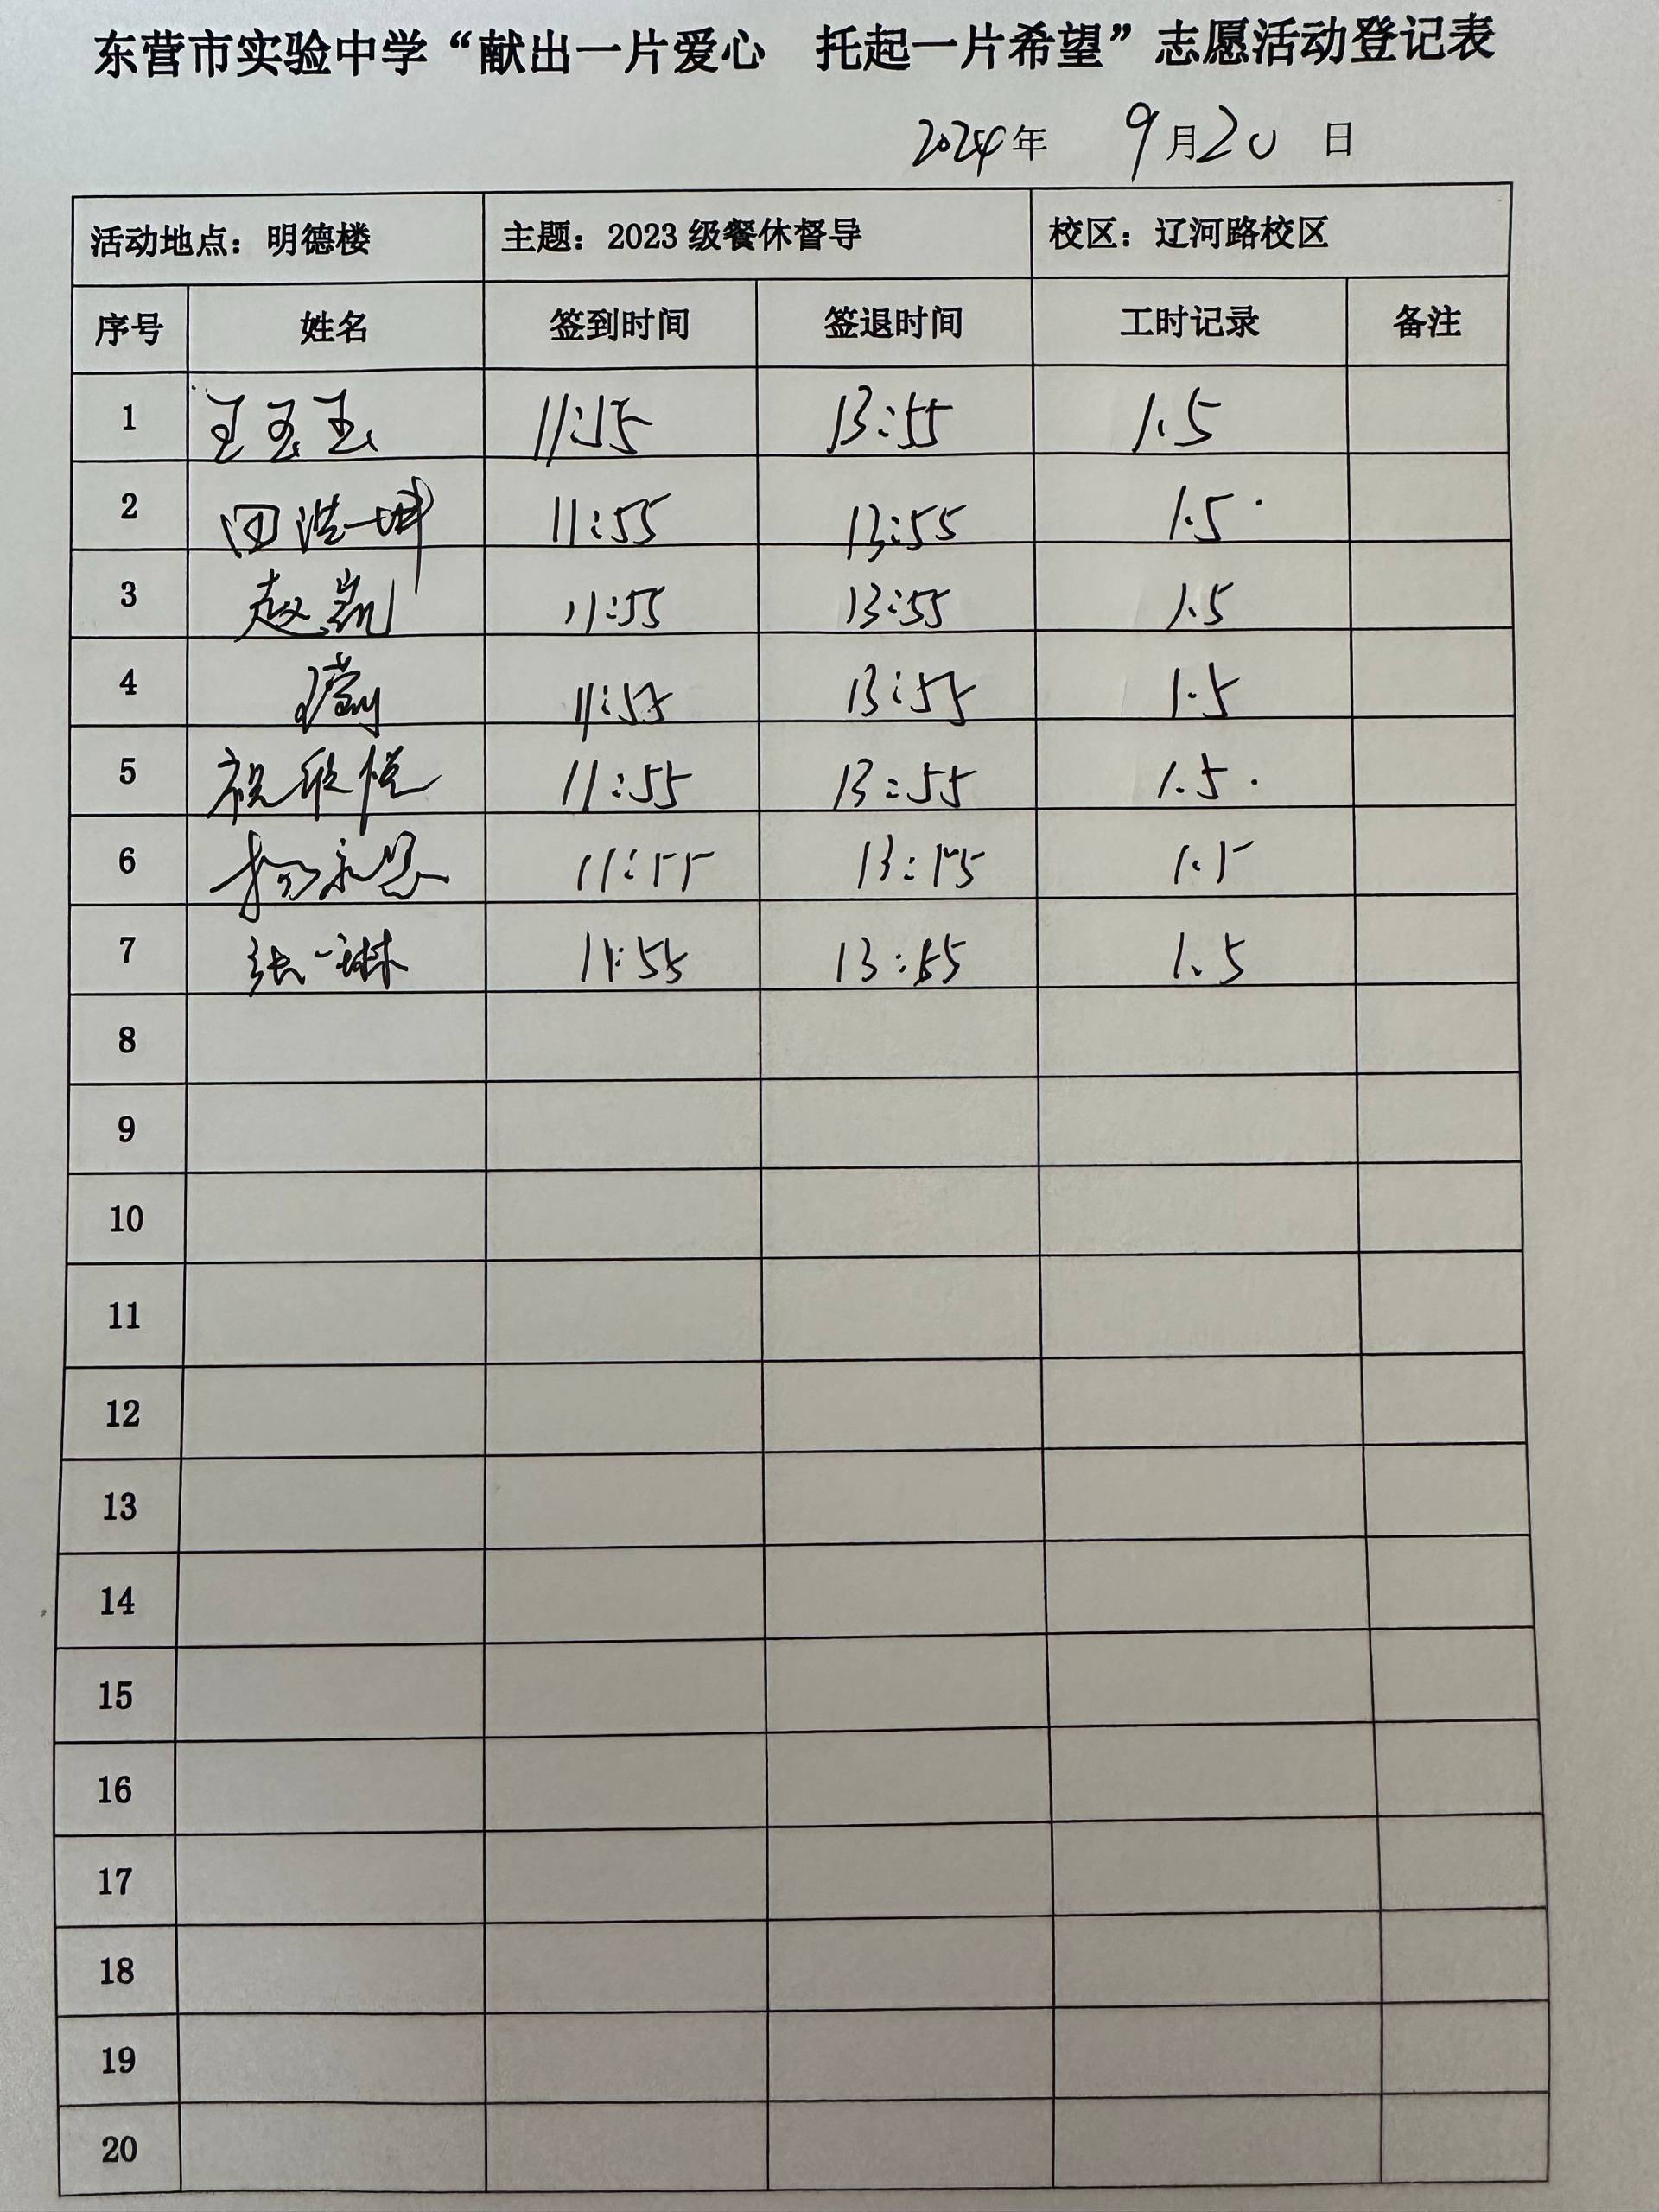 东营市实验中学“献出一片爱心 托起一片希望”志愿活动登记表
2024年 9月20日
活动地点：明德楼 主题：2023级餐休督导 校区：辽河路校区
序号 姓名 签到时间 签退时间 工时记录 备注
1 王玉玉 11:55 13:55 1.5
2 田浩坤 11:55 13:55 1.5
3 赵岚 11:55 13:55 1.5
4 11:55 13:55 1.5
5 祝欣悦 11:55 13:55 1.5
6 杨永昱 11:55 13:55 1.5
7 张一琳 11:55 13:55 1.5
8
9
10
11
12
13
14
15
16
17
18
19
20